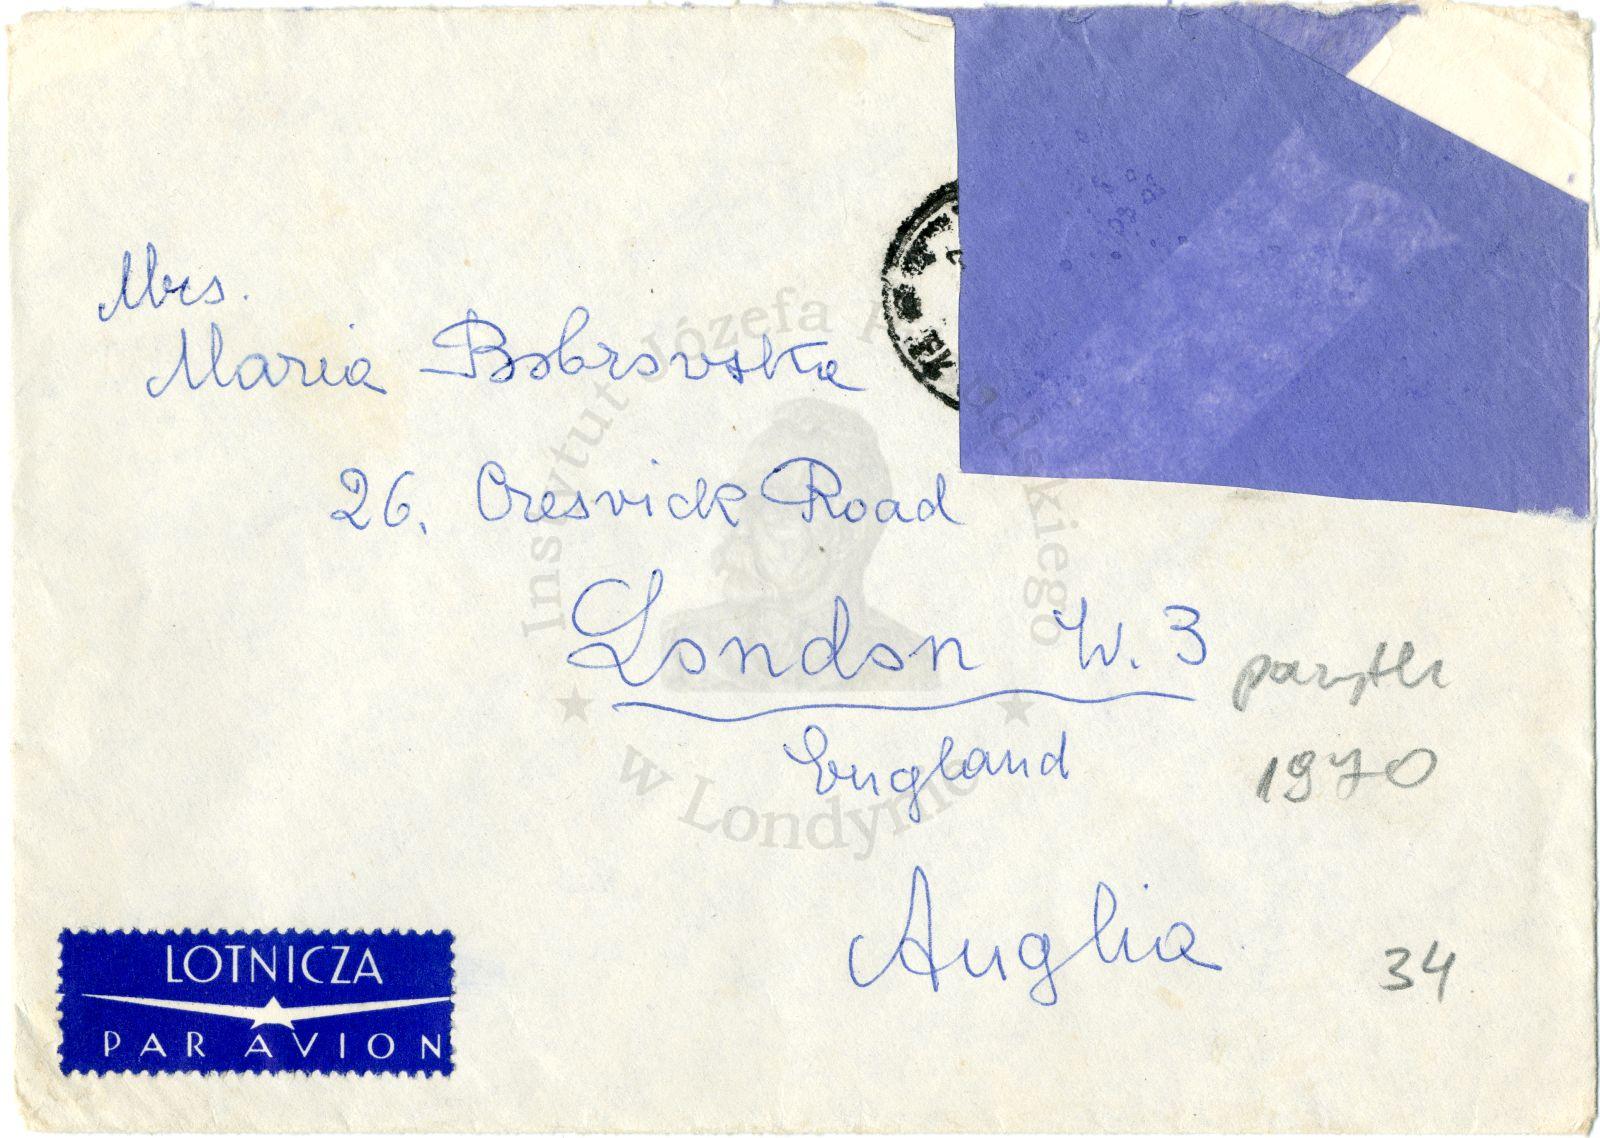 Mrs.
Maria Bobrowska
26, Creswick Road
London W. 3
England
1970
Anglia
34
LOTNICZA
PAR AVION
Instytut Józefa Piłsudskiego
w Londynie